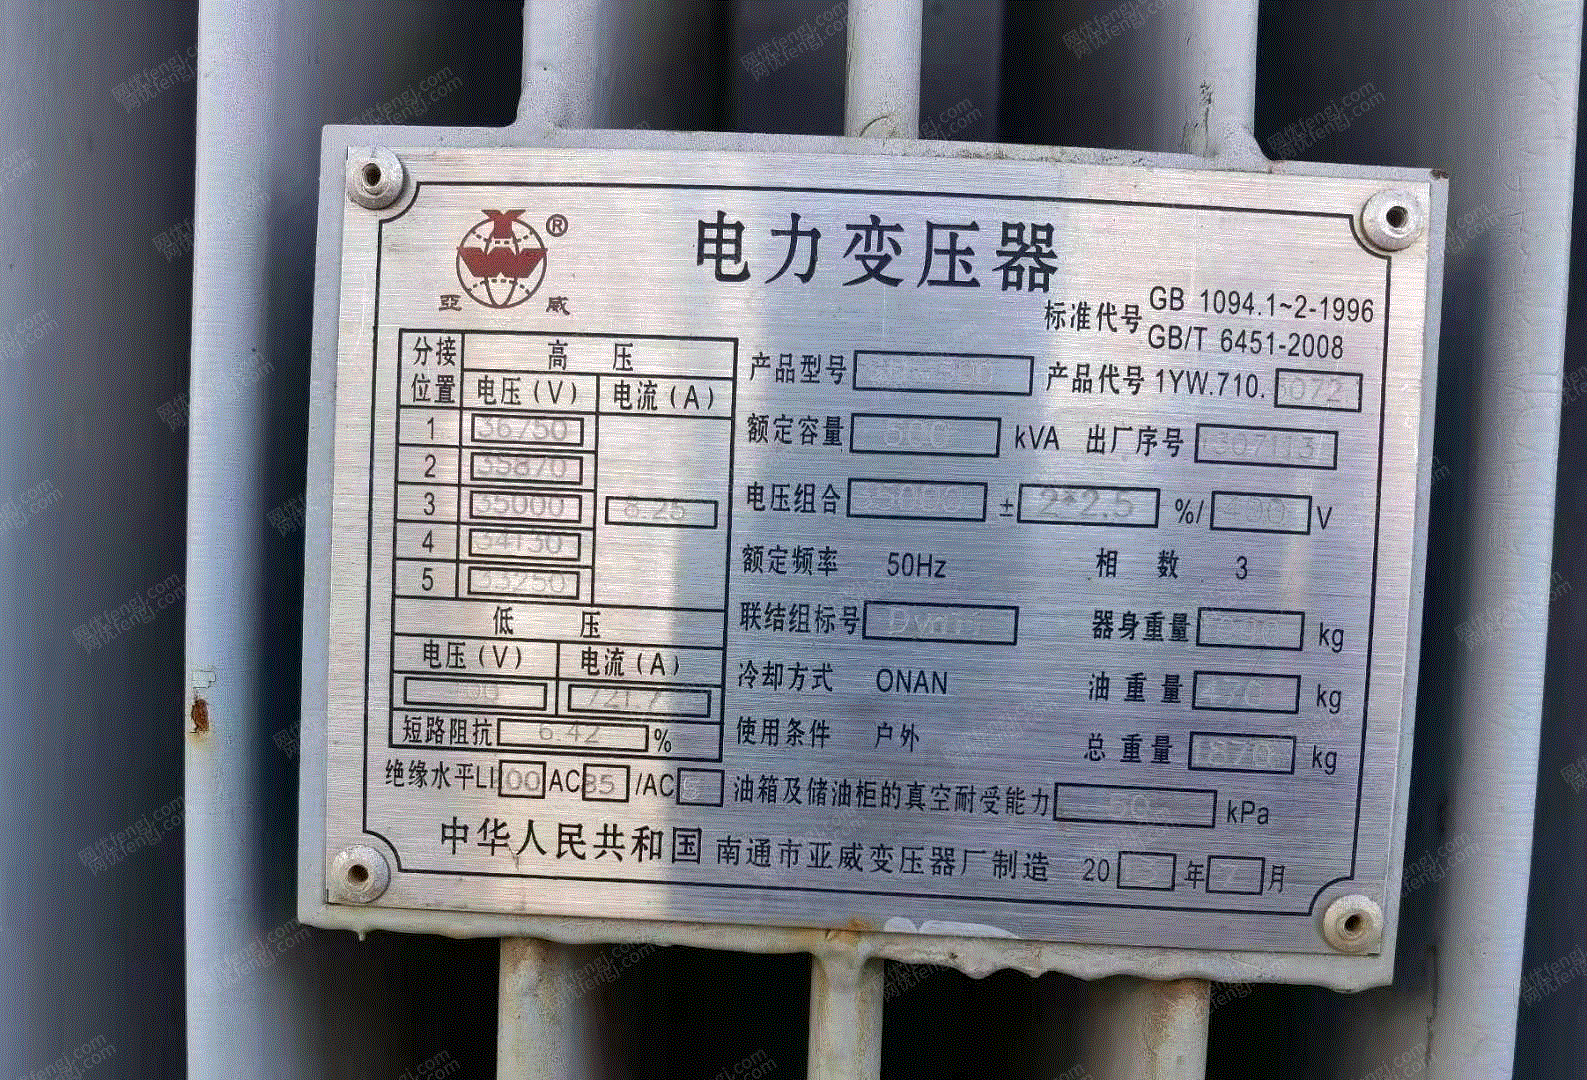 ®
亚 威
电力变压器
标准代号 GB 1094.1~2-1996
GB/T 6451-2008
分接位置 高 压
电压(V) 电流(A)
1 36750
2 35870
3 35000 8.25
4 34130
5 33250
低 压
电压(V) 电流(A)
短路阻抗 6.42 %
绝缘水平LI 00 AC 85 /AC 5
产品型号
产品代号 1YW.710. 5072
额定容量 kVA 出厂序号
电压组合 35000 ± 2*2.5 %/ 400 V
额定频率 50Hz 相 数 3
联结组标号 Dyn11 器身重量 kg
冷却方式 ONAN 油 重 量 kg
使用条件 户外 总 重 量 kg
油箱及储油柜的真空耐受能力 kPa
中华人民共和国 南通市亚威变压器厂制造 20 年 7 月
网优fengj.com